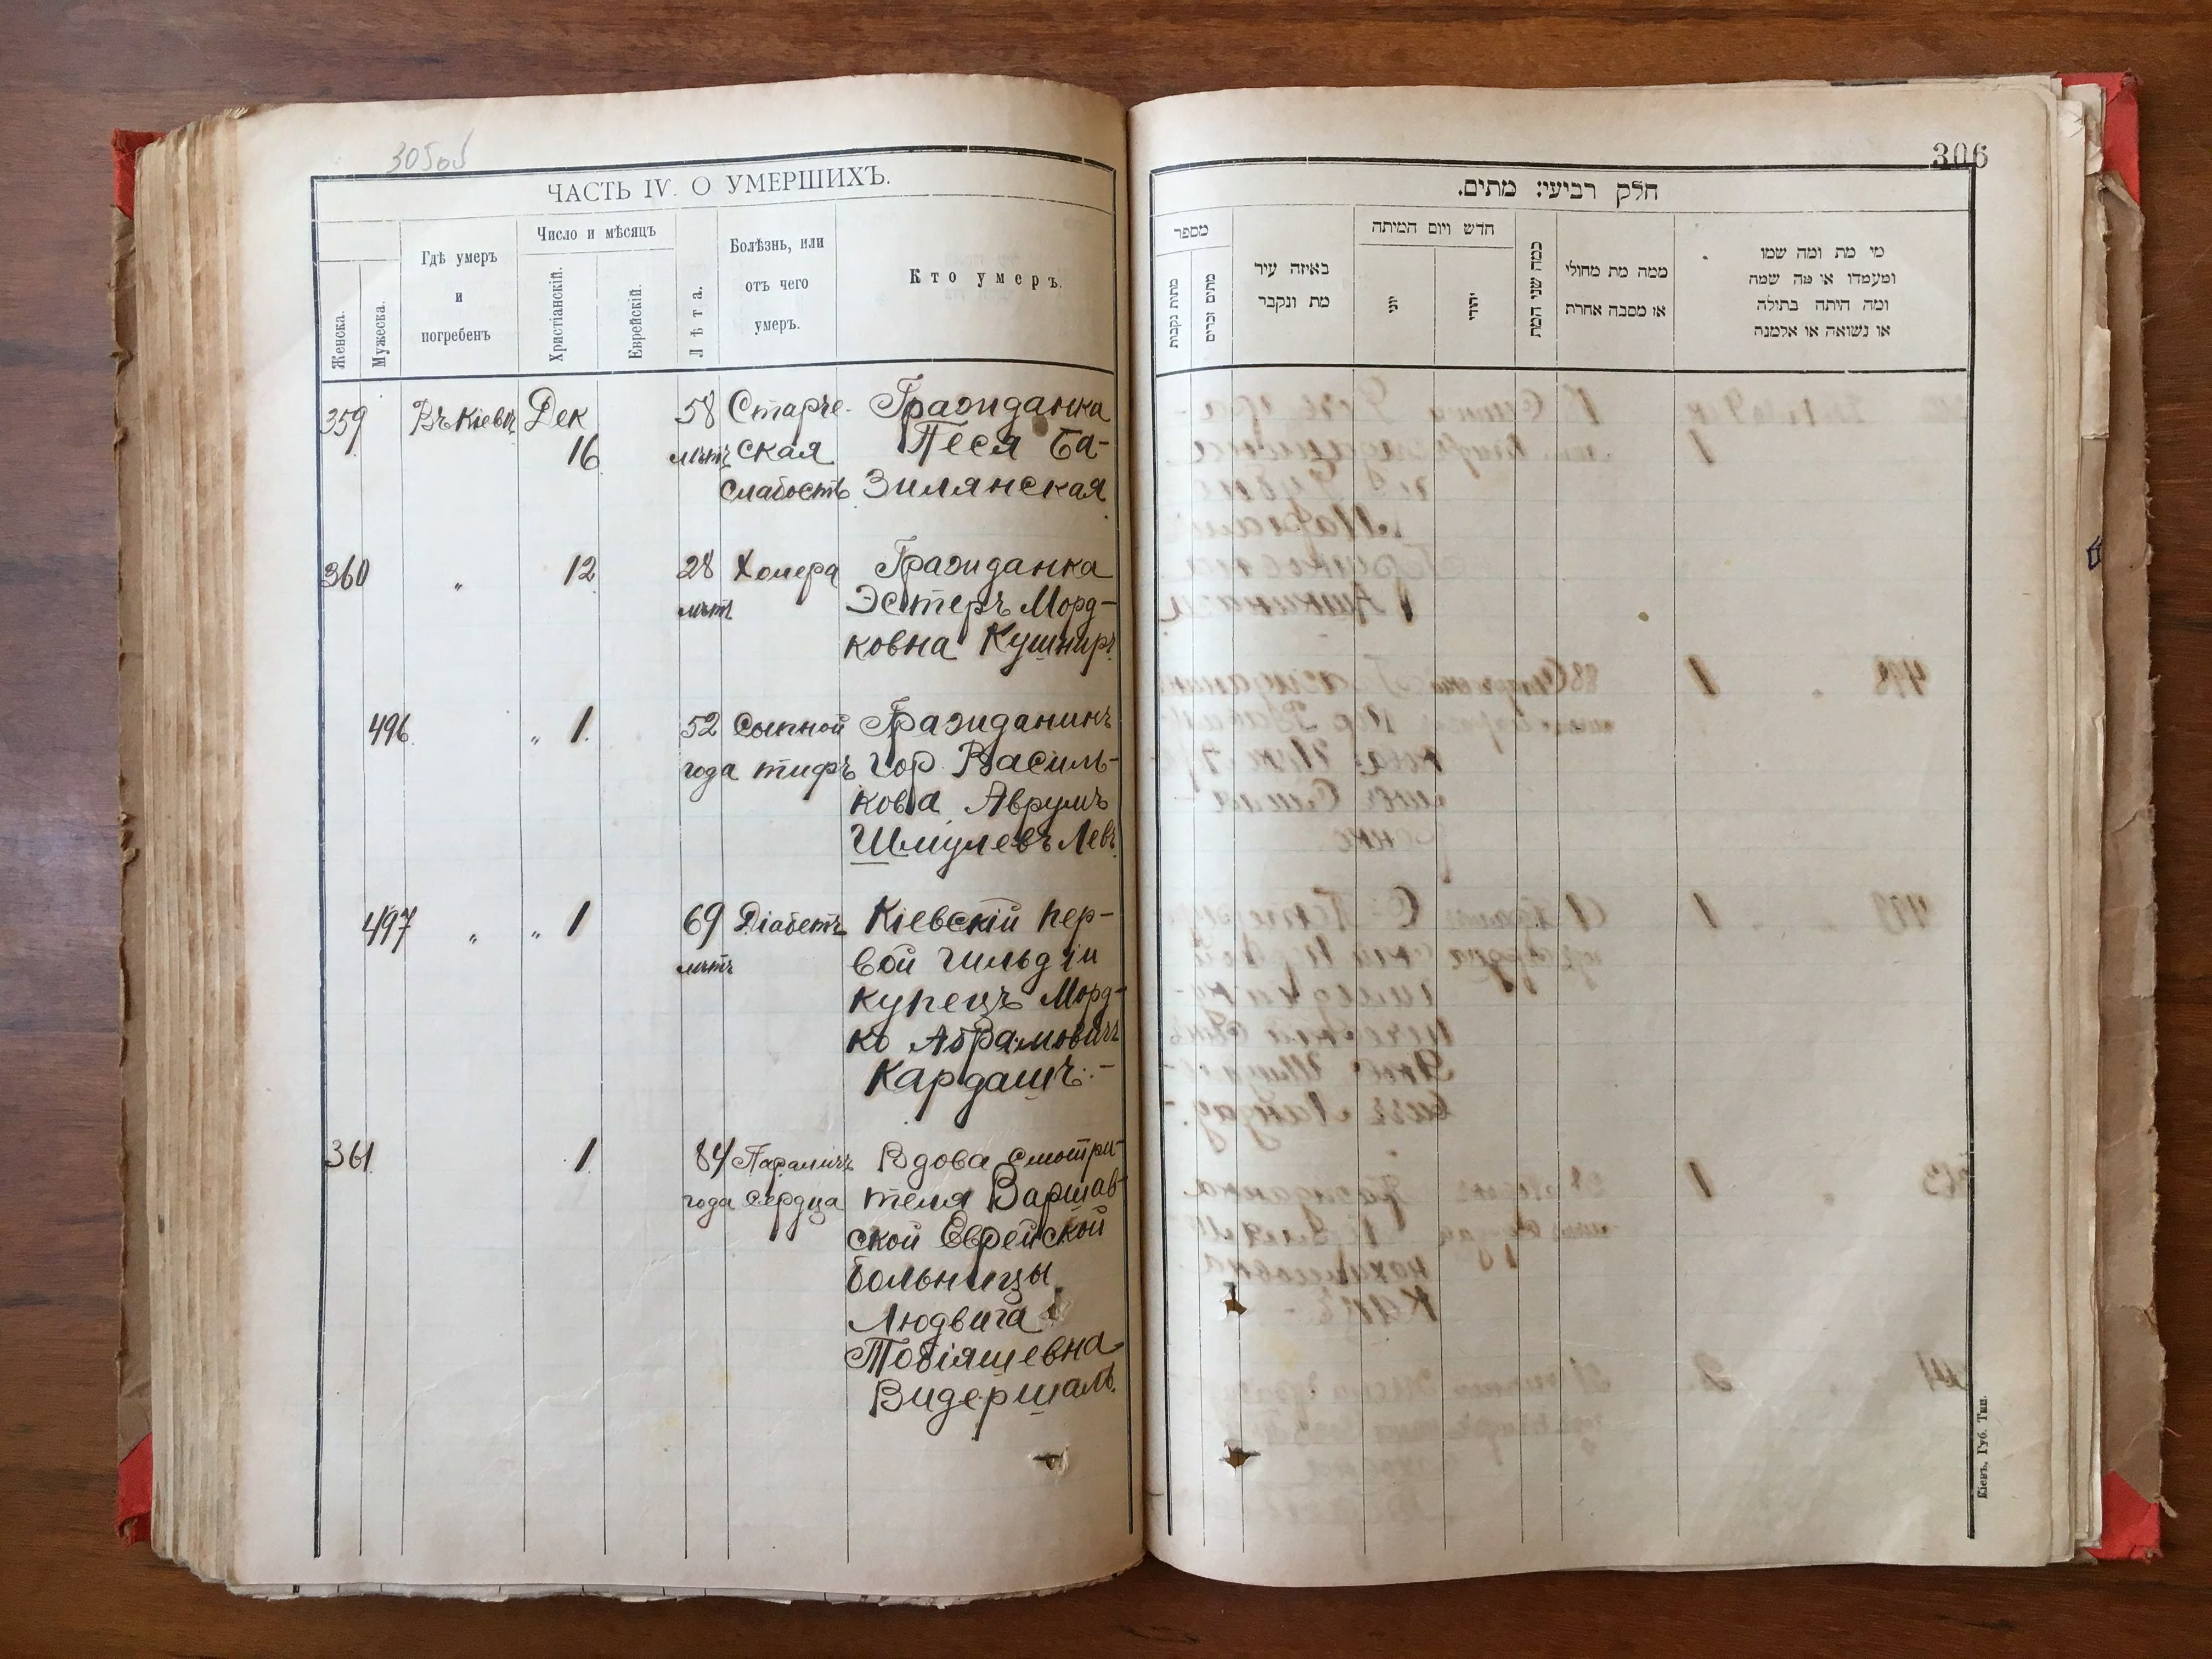 305об
ЧАСТЬ IV. О УМЕРШИХЪ.
Женска.
Мужеска.
Гдѣ умеръ
и
погребенъ
Число и мѣсяцъ
Христіанскій.
Еврейскій.
Лѣта.
Болѣзнь, или
отъ чего
умеръ.
Кто умеръ.
359 Въ Кіевѣ Дек 58 Старче- Гражданка
16 лѣтъ ская Песя Ба-
слабость зилянская
360 " 12 28 Холера Гражданка
лѣтъ Эстеръ Морд-
ковна Кушниръ
496 " 1 52 Сыпной Гражданинъ
года тифъ гор. Василь-
кова Аврумъ
Шмулевъ Левъ
497 " " 1 69 Діабетъ Кіевскій пер-
лѣтъ вой гильдіи
купецъ Морд-
ко Абрамовичъ
Кардашъ.-
361 1 84 Параличъ Вдова смотри-
года сердца теля Варшав-
ской Еврейской
больницы
Людвига
Тобіяшевна
Видершаль.
306
חלק רביעי: מתים.
מספר
מתות נקבות
מתים זכרים
באיזה עיר
מת ונקבר
חדש ויום המיתה
יוני
יהודי
כמה שני המת
ממה מת מחולי
או מסבה אחרת
מי מת ומה שמו
ומעמדו או מה שמה
ומה היתה בתולה
או נשואה או אלמנה
Кіевъ, Губ. Тип.